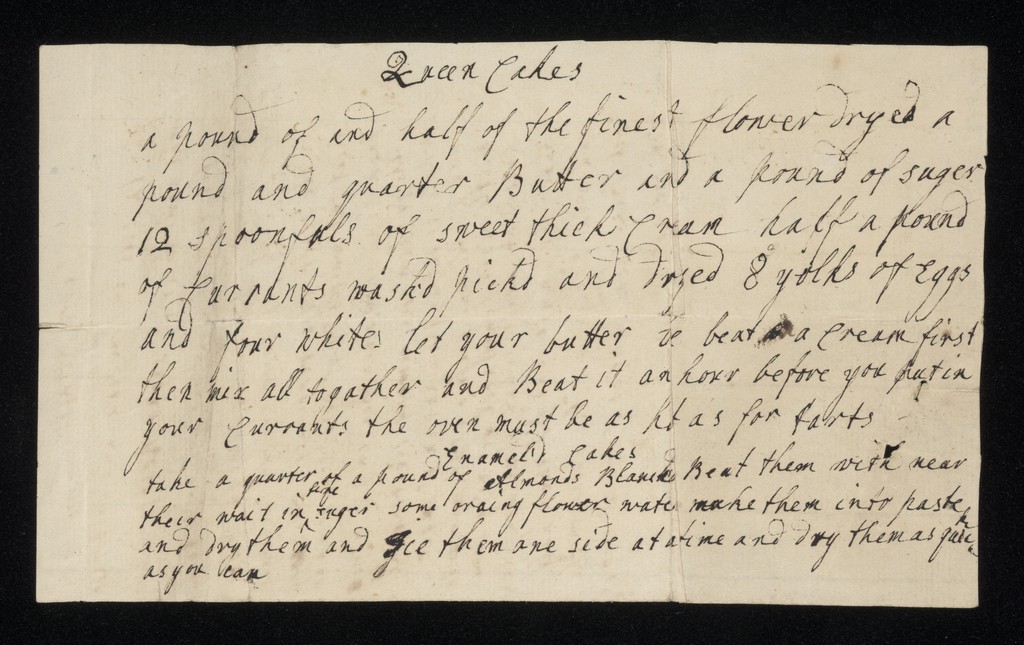 Queen Cakes
a pound of and half of the finest flower dryed a
pound and quarter Butter and a pound of suger
12 spoonfuls of sweet thick Cream half a pound
of Currants washd pickd and dryed 8 yolks of Eggs
and four whites let your butter be beat a Cream first
then mix all togather and Beat it an hour before you put in
your Currants the oven must be as hot as for tarts
Enameld Cakes
take a quarter of a pound of Almonds Blanchd Beat them with near
their wait in suger some oraing flower water make them into paste
and dry them and Ice them one side at a time and dry them as quick
as you can